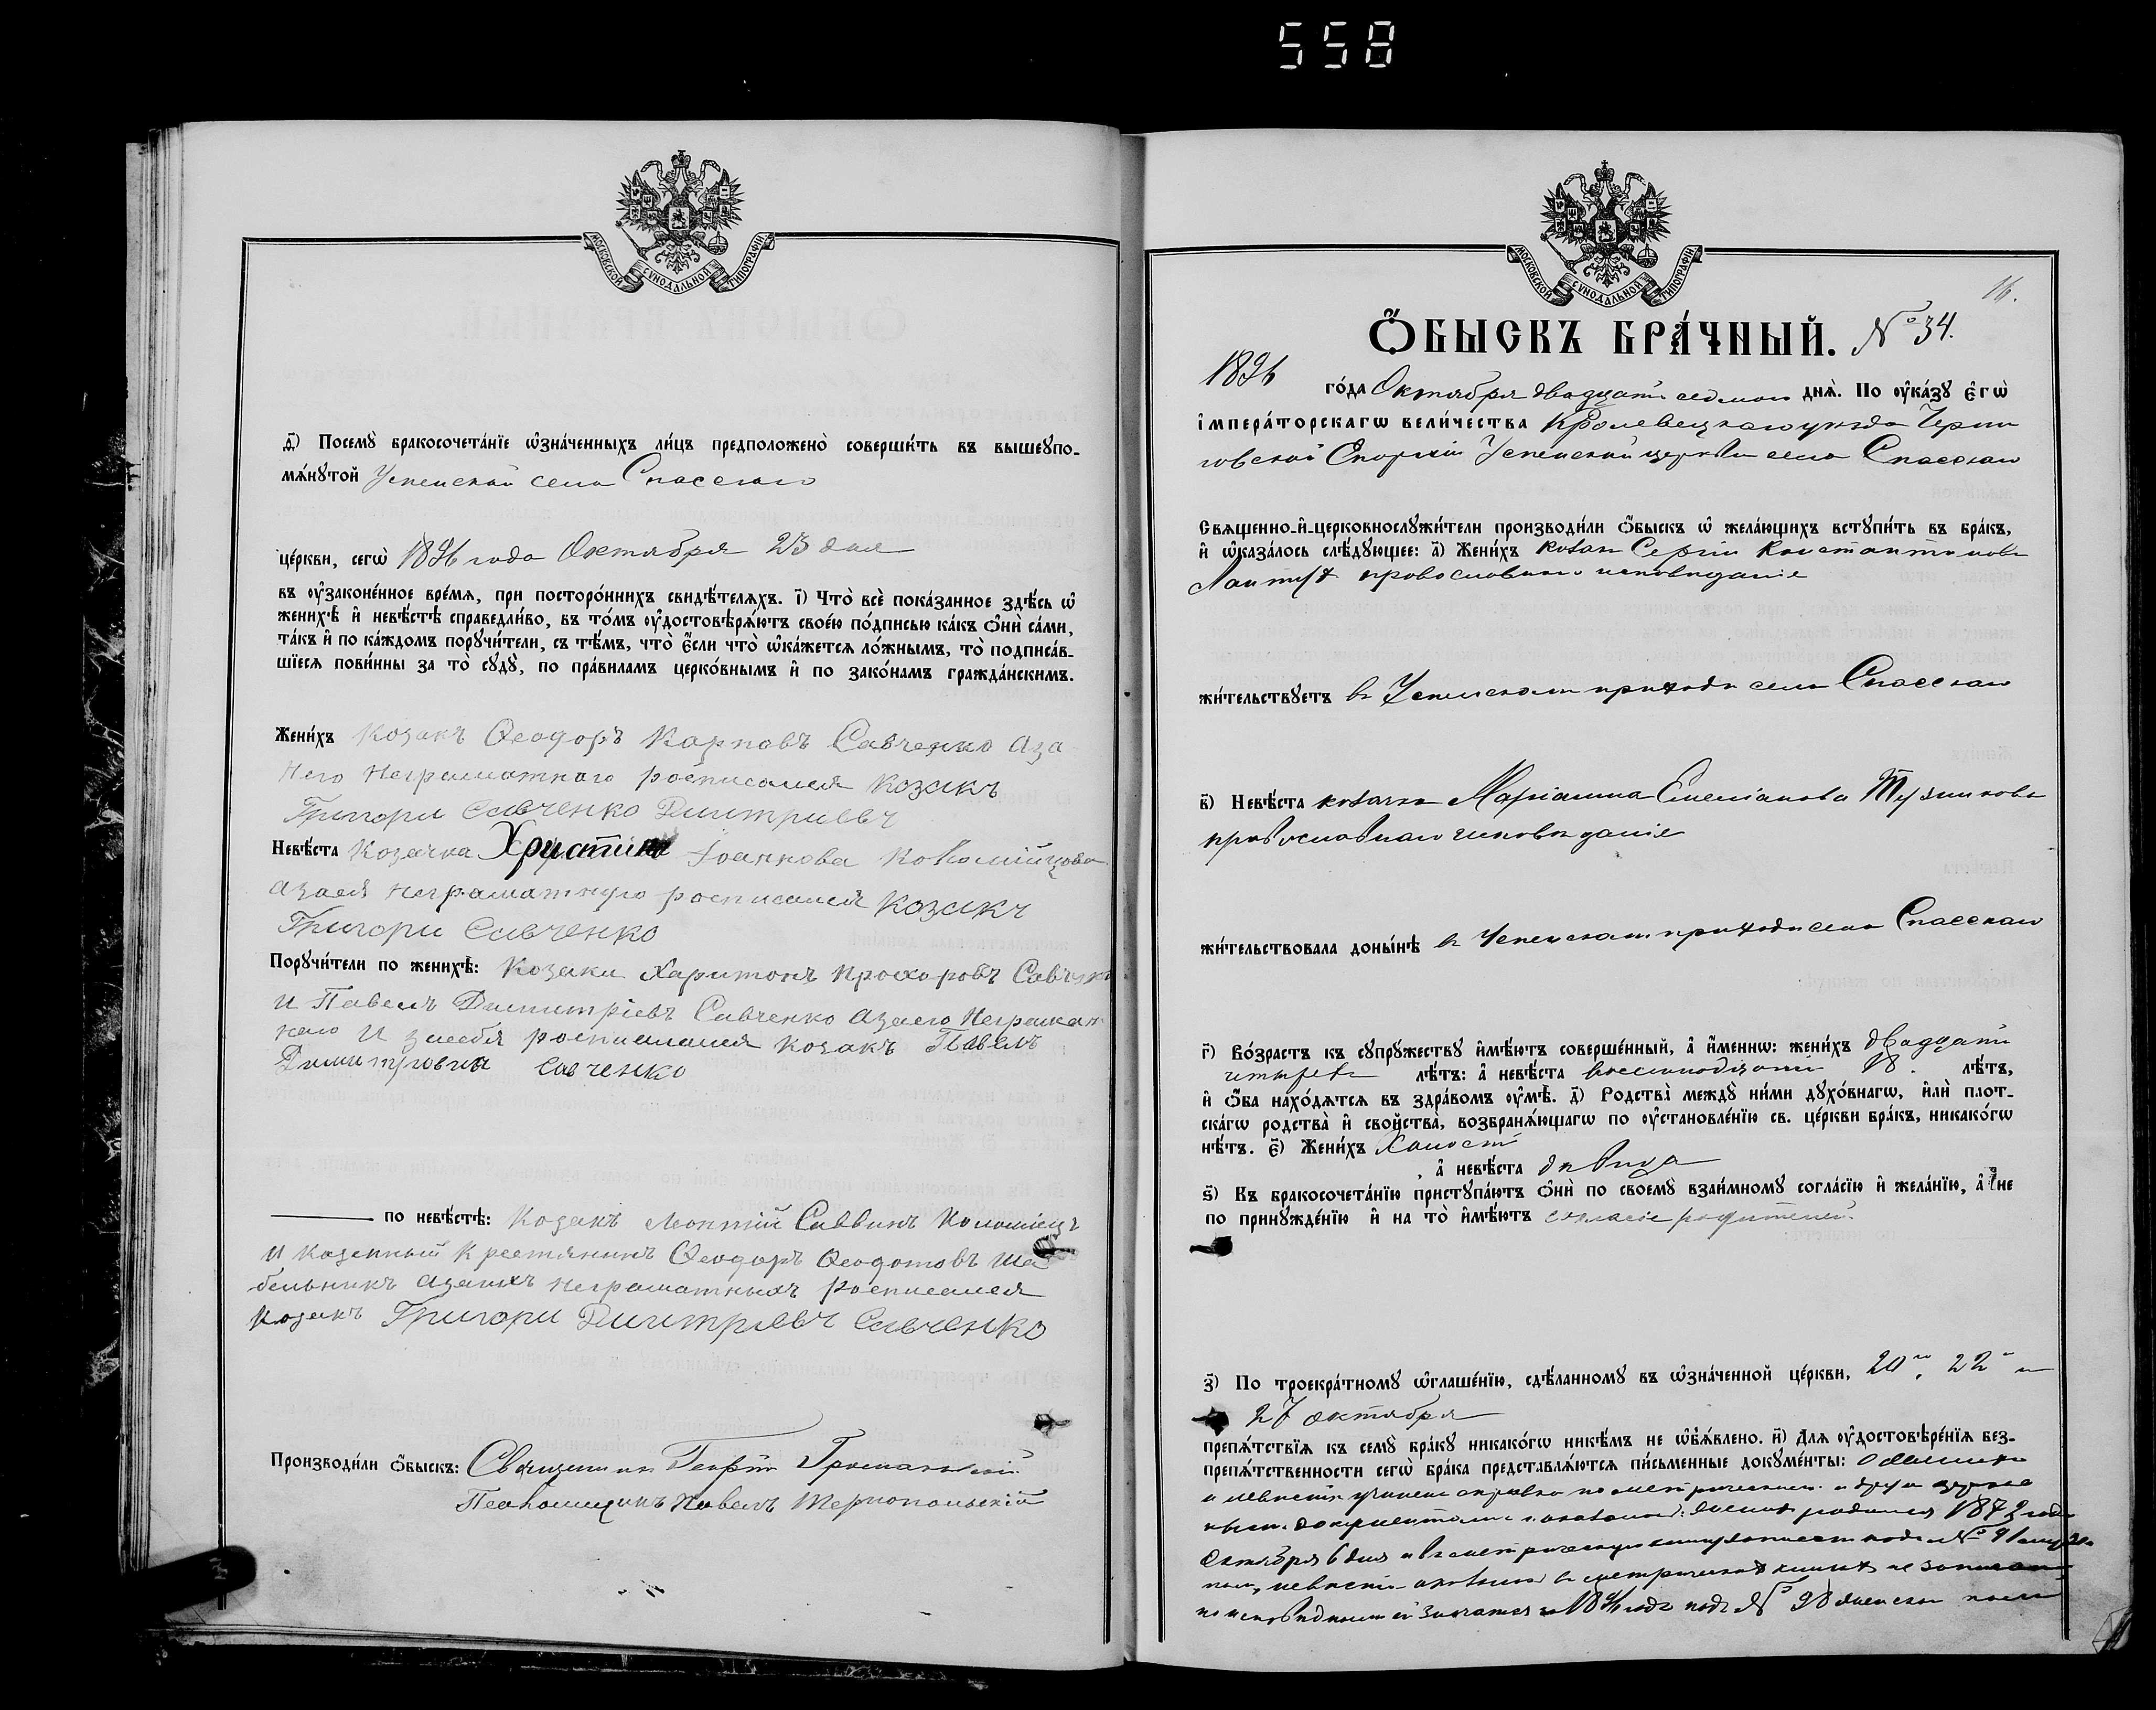 558
МОСКОВСКОЙ СѴНОДАЛЬНОЙ ТИПОГРАФІИ
ѳ҃) Посемꙋ̀ бракосочета́нїе ѡ҆зна́ченныхъ ли́цъ предположено̀ соверши́ть въ вышеꙋпо-
мѧ́нꙋтой Успенской села Спасскаго
це́ркви, сегѡ̀ 1896 года Октября 23 дня
въ ᲂу҆зако́ненное вре́мѧ, при посторо́ннихъ свидѣ́телѧхъ. і҃) Что̀ всѐ пока́занное здѣ́сь ѡ҆
женихѣ̀ и҆ невѣ́стѣ справедли́во, въ то́мъ ᲂу҆достовѣрѧ́ютъ свое́ю по́дписью ка́къ ѻ҆нѝ са́ми,
та́къ и҆ по ка́ждомъ порꙋчи́тели, съ тѣ́мъ, что̀ є҆́сли что̀ ѡ҆ка́жетсѧ ло́жнымъ, то̀ подписа́в-
шїесѧ пови́нны за то̀ сꙋдꙋ̀, по пра́виламъ церко́внымъ и҆ по зако́намъ гражда́нскимъ.
Жени́хъ Козакъ Ѳеодоръ Карповъ Савченко аза
Него Неграматного росписался Козакъ
Григори Савченко Дмитриевъ
Невѣ́ста Козачка Христина Іоаннова Коломійцова
азаея неграматную росписался Козакъ
Григори Савченко
Порꙋчи́тели по женихѣ̀: Козаки Харитонъ Прохоровъ Савченко
и Павелъ Димитріевъ Савченко азаего Неграмат
наго И засебя росписался козакъ Павелъ
Савченко
по невѣ́стѣ: Козакъ Леонтій Саввинъ Коломіецъ
и казенный Крестянинъ Ѳеодоръ Ѳеодотовъ Ша
бельникъ азаихъ неграматныхъ росписался
Козакъ Григори Дмитриевъ Савченко
Производи́ли ѻ҆́быскъ: Священникъ Георгій
Псаломщикъ Павелъ Тернопольскій
МОСКОВСКОЙ СѴНОДАЛЬНОЙ ТИПОГРАФІИ
16.
Ѻ҆́БЫСКЪ БРА́ЧНЫЙ. № 34.
1896 го́да Октября двадцать седьмого днѧ̀. По ᲂу҆ка́зꙋ є҆гѡ̀
і҆мпера́торскагѡ вели́чества Кролевецкаго уѣзда Черни
говской Епархіи Успенской церкви села Спасскаго
Свѧщенно-и҆-церковнослꙋжи́тели производи́ли ѻ҆́быскъ ѡ҆ жела́ющихъ встꙋпи́ть въ бра́къ,
и҆ ѡ҆каза́лось слѣ́дꙋющее: а҃) Жени́хъ козакъ Сергій Константиновъ
православнаго исповѣданія
жи́тельствꙋетъ въ Успенскомъ приходѣ села Спасскаго
в҃) Невѣ́ста козачка Маріанна Емеліанова
православнаго исповѣданія
жи́тельствовала доны́нѣ въ Успенскомъ приходѣ села Спасскаго
г҃) Во́зрастъ къ сꙋпрꙋ́жествꙋ и҆мѣ́ютъ соверше́нный, а҆ и҆́меннѡ: жени́хъ двадцати
четырехъ лѣ́тъ: а҆ невѣ́ста восемнадцати 18. лѣ́тъ,
и҆ ѻ҆́ба нахо́дѧтсѧ въ здра́вомъ ᲂу҆мѣ̀. д҃) Родства̀ междꙋ̀ ни́ми дꙋхо́внагѡ, и҆лѝ пло́т-
ска́гѡ родства̀ и҆ сво́йства, возбранѧ́ющагѡ по ᲂу҆становле́нїю св. це́ркви бра́къ, никако́гѡ
нѣ́тъ. є҃) Жени́хъ холостъ
, а҆ невѣ́ста дѣвица
ѕ҃) Къ бракосочета́нїю пристꙋпа́ютъ ѻ҆нѝ по своемꙋ̀ взаи́мномꙋ согла́сїю и҆ жела́нїю, а҆ не
по принꙋжде́нїю и҆ на то̀ и҆мѣ́ютъ согласіе родителей.
з҃) По троекра́тномꙋ ѡ҆глаше́нїю, сдѣ́ланномꙋ въ ѡ҆зна́ченной це́ркви, 20го, 22 и
27 октября
препѧ́тствїѧ къ семꙋ̀ бра́кꙋ никако́гѡ никѣ́мъ не ѡ҆б̾ѧ́влено. и҃) Длѧ ᲂу҆достовѣре́нїѧ без-
препѧ́тственности сегѡ̀ бра́ка представлѧ́ютсѧ пи́сьменные докꙋме́нты: О женихѣ
и невѣстѣ учинена справка по метрическимъ и другимъ
документамъ и оказалось: женихъ родился 1872 года
Октября 6 дня и въ метрическую книгу записанъ подъ №
невѣста въ метрической книгѣ не записана
по исповѣдной значатся за 1896 годъ подъ №